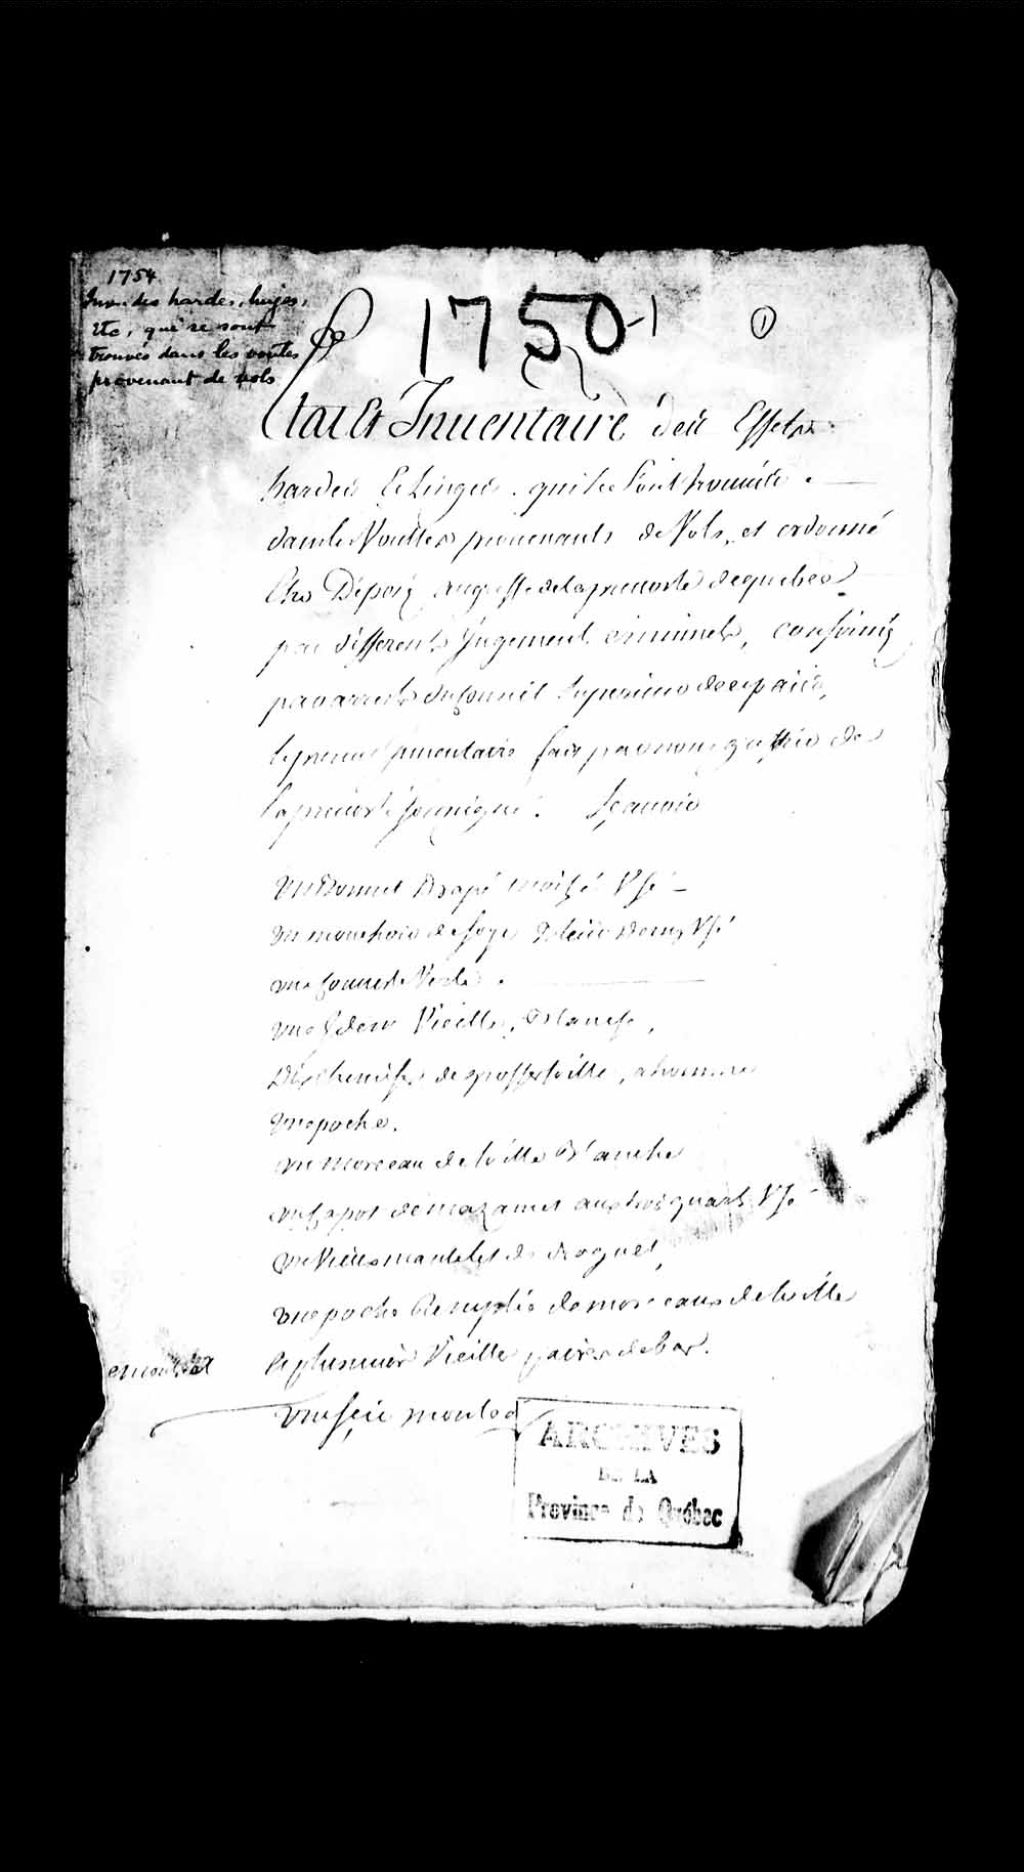 1754
Inv. des hardes, linges,
etc, qui se sont
trouvés dans les voutes
provenant de vols
1750-1
1
Etat Et Inuentaire des Effets
hardes Et Linges qui se sont trouués
dans les Voultes prouenants de Vols, et ordonné
Etre Déposé au greffe de la preuosté de quebec
par differents Jugements criminels, confirmés
par arrests du Conseil Superieur de ce païs,
le present Inuentaire fait par nous greffier de
la preuosté soussigné. Sçauoir
un Bonnet Drapé Usé
un mouchoir de soye Usé
une Vieille Blanche,
Dix chemises de grosse toille, a homme
une poche.
un morceau de toille Blanche
un Capot de mazamet aux trois quarts Usé
un Vieux mantelet de droguet,
une poche Remplie de morceaux de toille
et plusieurs Vieille paires de bas.
une scie montée
ARCHIVES
DE LA
Province de Québec